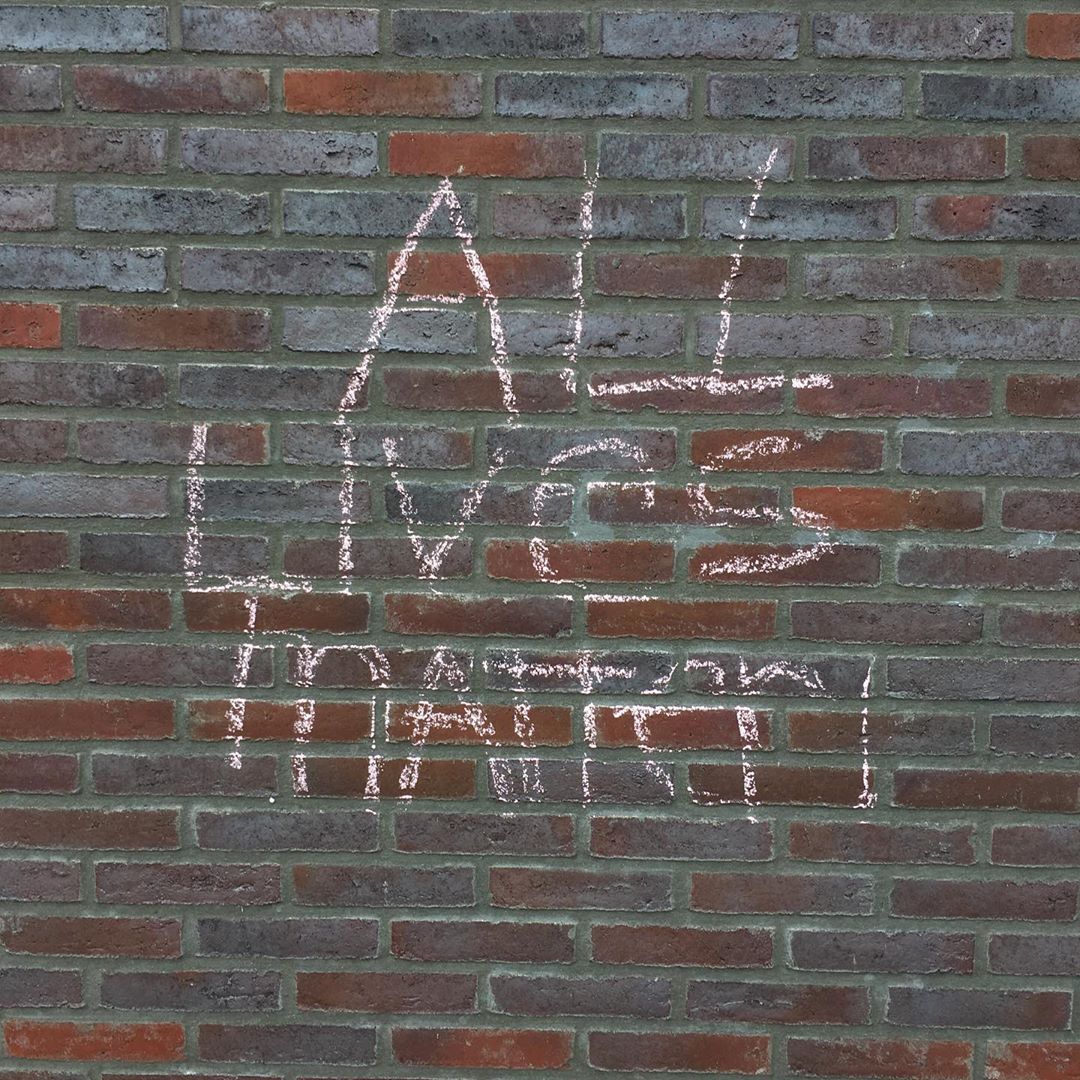 ALL
LIVES
MATTER